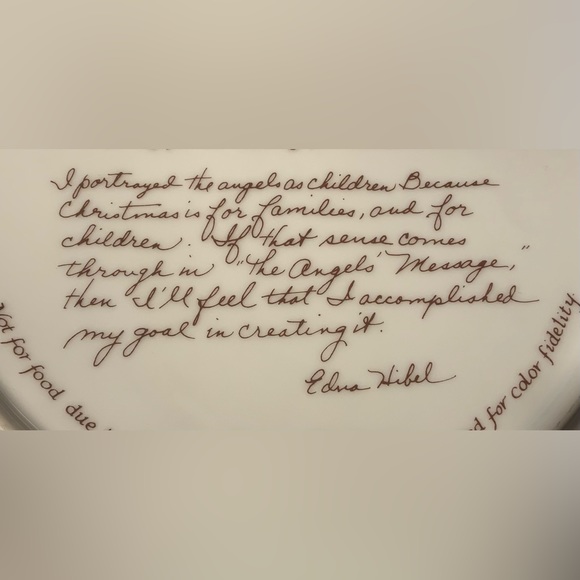 I portrayed the angels as children Because
Christmas is for families, and for
children. If that sense comes
through in "The Angels' Message,"
then I'll feel that I accomplished
my goal in creating it.
Edna Hibel
Not for food due
for color fidelity